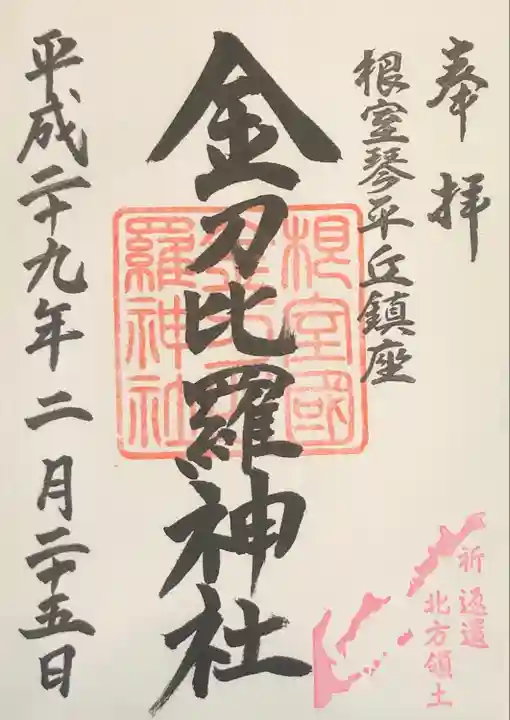 奉拝
根室琴平丘鎮座
金刀比羅神社
根室國
金刀比
羅神社
平成二十九年二月二十五日
祈返還
北方領土